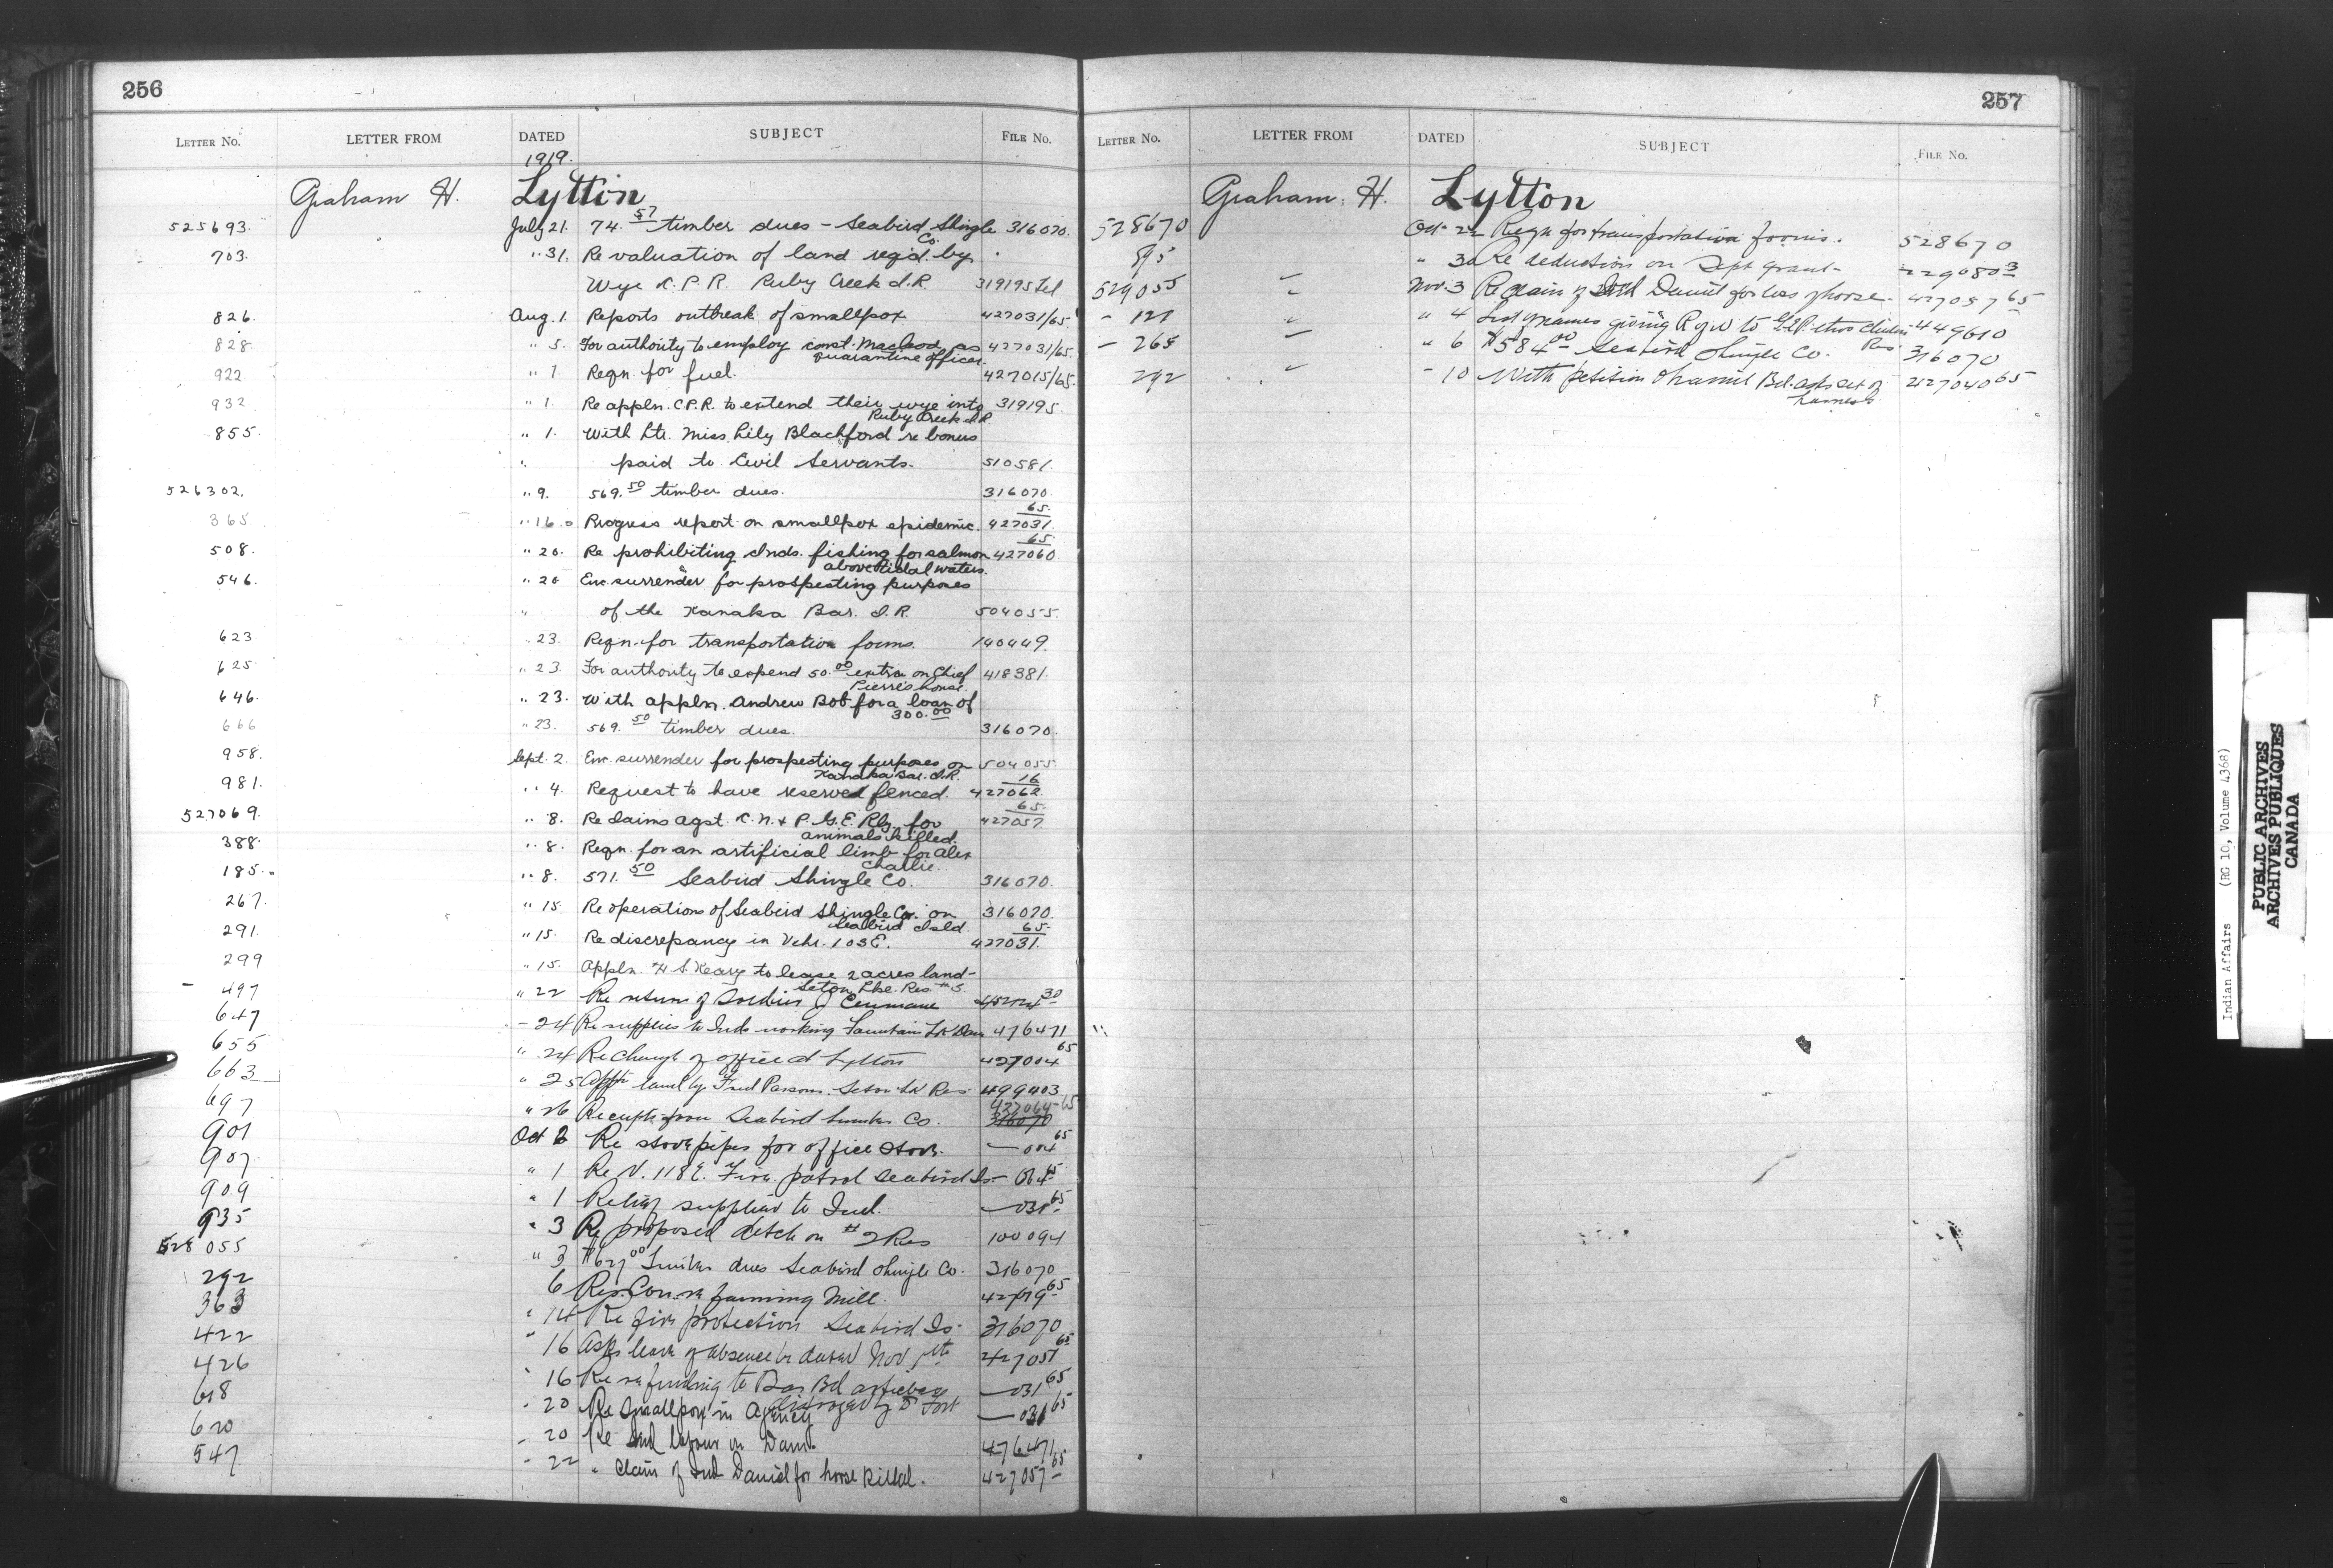 256
LETTER No. LETTER FROM DATED SUBJECT FILE No.
1919.
Graham H. Lytton
525693. July 21. 74.57 timber dues - Seabird Shingle Co. 316070.
703. " 31. Re valuation of land reqd. by
Wye C.P.R. Ruby Creek I.R. 319195 Tel
826. Aug. 1. Reports outbreak of smallpox 427031/65.
828. " 5. For authority to employ const. Macleod as quarantine officer. 427031/65.
922 " 1. Reqn. for fuel. 427015/65.
932 " 1. Re appln. C.P.R. to extend their wye into Ruby Creek I.R. 319195
855. " 1. With ltr. Miss Lily Blachford re bonus
" paid to Civil Servants. 510581.
526302. " 9. 569.50 timber dues. 316070
365. " 16. Progress report on smallpox epidemic. 427031. 65.
508. " 20. Re prohibiting Inds. fishing for salmon above tidal waters. 427060. 65.
546. " 20 Enc. surrender for prospecting purposes
" of the Kanaka Bar. I.R. 504055.
623 " 23. Reqn. for transportation forms. 140449.
625 " 23. For authority to expend 50.00 extra on Chief Pierre's house. 418381.
646. " 23. With appln. Andrew Bob for a loan of 300.00
666 " 23. 569.50 timber dues. 316070.
958. Sept. 2. Enc. surrender for prospecting purposes on Kanaka Bar. I.R. 504055
981. " 4. Request to have reserve fenced. 427062. 16
527069. " 8. Re claims agst. C.N. & P.G.E. Rly. for animals killed. 427057. 65.
388. " 8. Reqn. for an artificial limb for Alex Charlie.
185. " 8. 571.50 Seabird Shingle Co. 316070.
267. " 15. Re operations of Seabird Shingle Co. on Seabird Isld. 316070.
291. " 15. Re discrepancy in Vchr. 103E. 427031. 65.
299 " 15. Appln. H.S. Keary to lease 2 acres land - Seton Lke. Res. #5.
- 497 " 22 Re return of Soldier J 30
647 - 24 Re supplies to Inds working Fountain Lk Dam 476471
655 " 24 Re change of office at Lytton 427004 65
663 " 25 Appln land by Fred Parsons. Seton Lk Res 499403
697 " 26 Receipts from Seabird Co. 427064-65 316070
901 Oct 2 Re stove pipes for office stove. — 004 65
907 " 1 Re V. 118E. Fire patrol Seabird Is - 064 65
909 " 1 Relief supplies to Ind. — 031 65
935 " 3 Re proposed ditch on #2 Res 100094
528055 " 3 $627.00 Timber dues Seabird Shingle Co. 316070
292 6 fanning Mill. 65
363 " 14 Re fire protection Seabird Is - 316070
422 " 16 Asks leave of absence Nov 427051 65
426 " 16 Re refunding to articles destroyed by — 031 65
618 - 20 Re Smallpox in Agency — 031 65
620 - 20 Re Ind labour on Dam 476471
547 - 22 " Claim of Ind Daniel for horse killed. 427057 65
257
LETTER No. LETTER FROM DATED SUBJECT FILE No.
Graham H. Lytton
528670 Oct 22 Reqn for transportation forms. 528670
895 " 30 Re deduction on Sept grant - 229080 3
529055 " Nov. 3 Re claim of Ind Daniel for loss of horse. 427057 65
- 121 " " 4 List of names giving R of W to 449610
- 265 " " 6 $584.00 Seabird Shingle Co. 316070
292 " - 10 With petition Bd. asks set of harness 427040 65
Indian Affairs (RG 10, Volume 4368)
PUBLIC ARCHIVES
ARCHIVES PUBLIQUES
CANADA